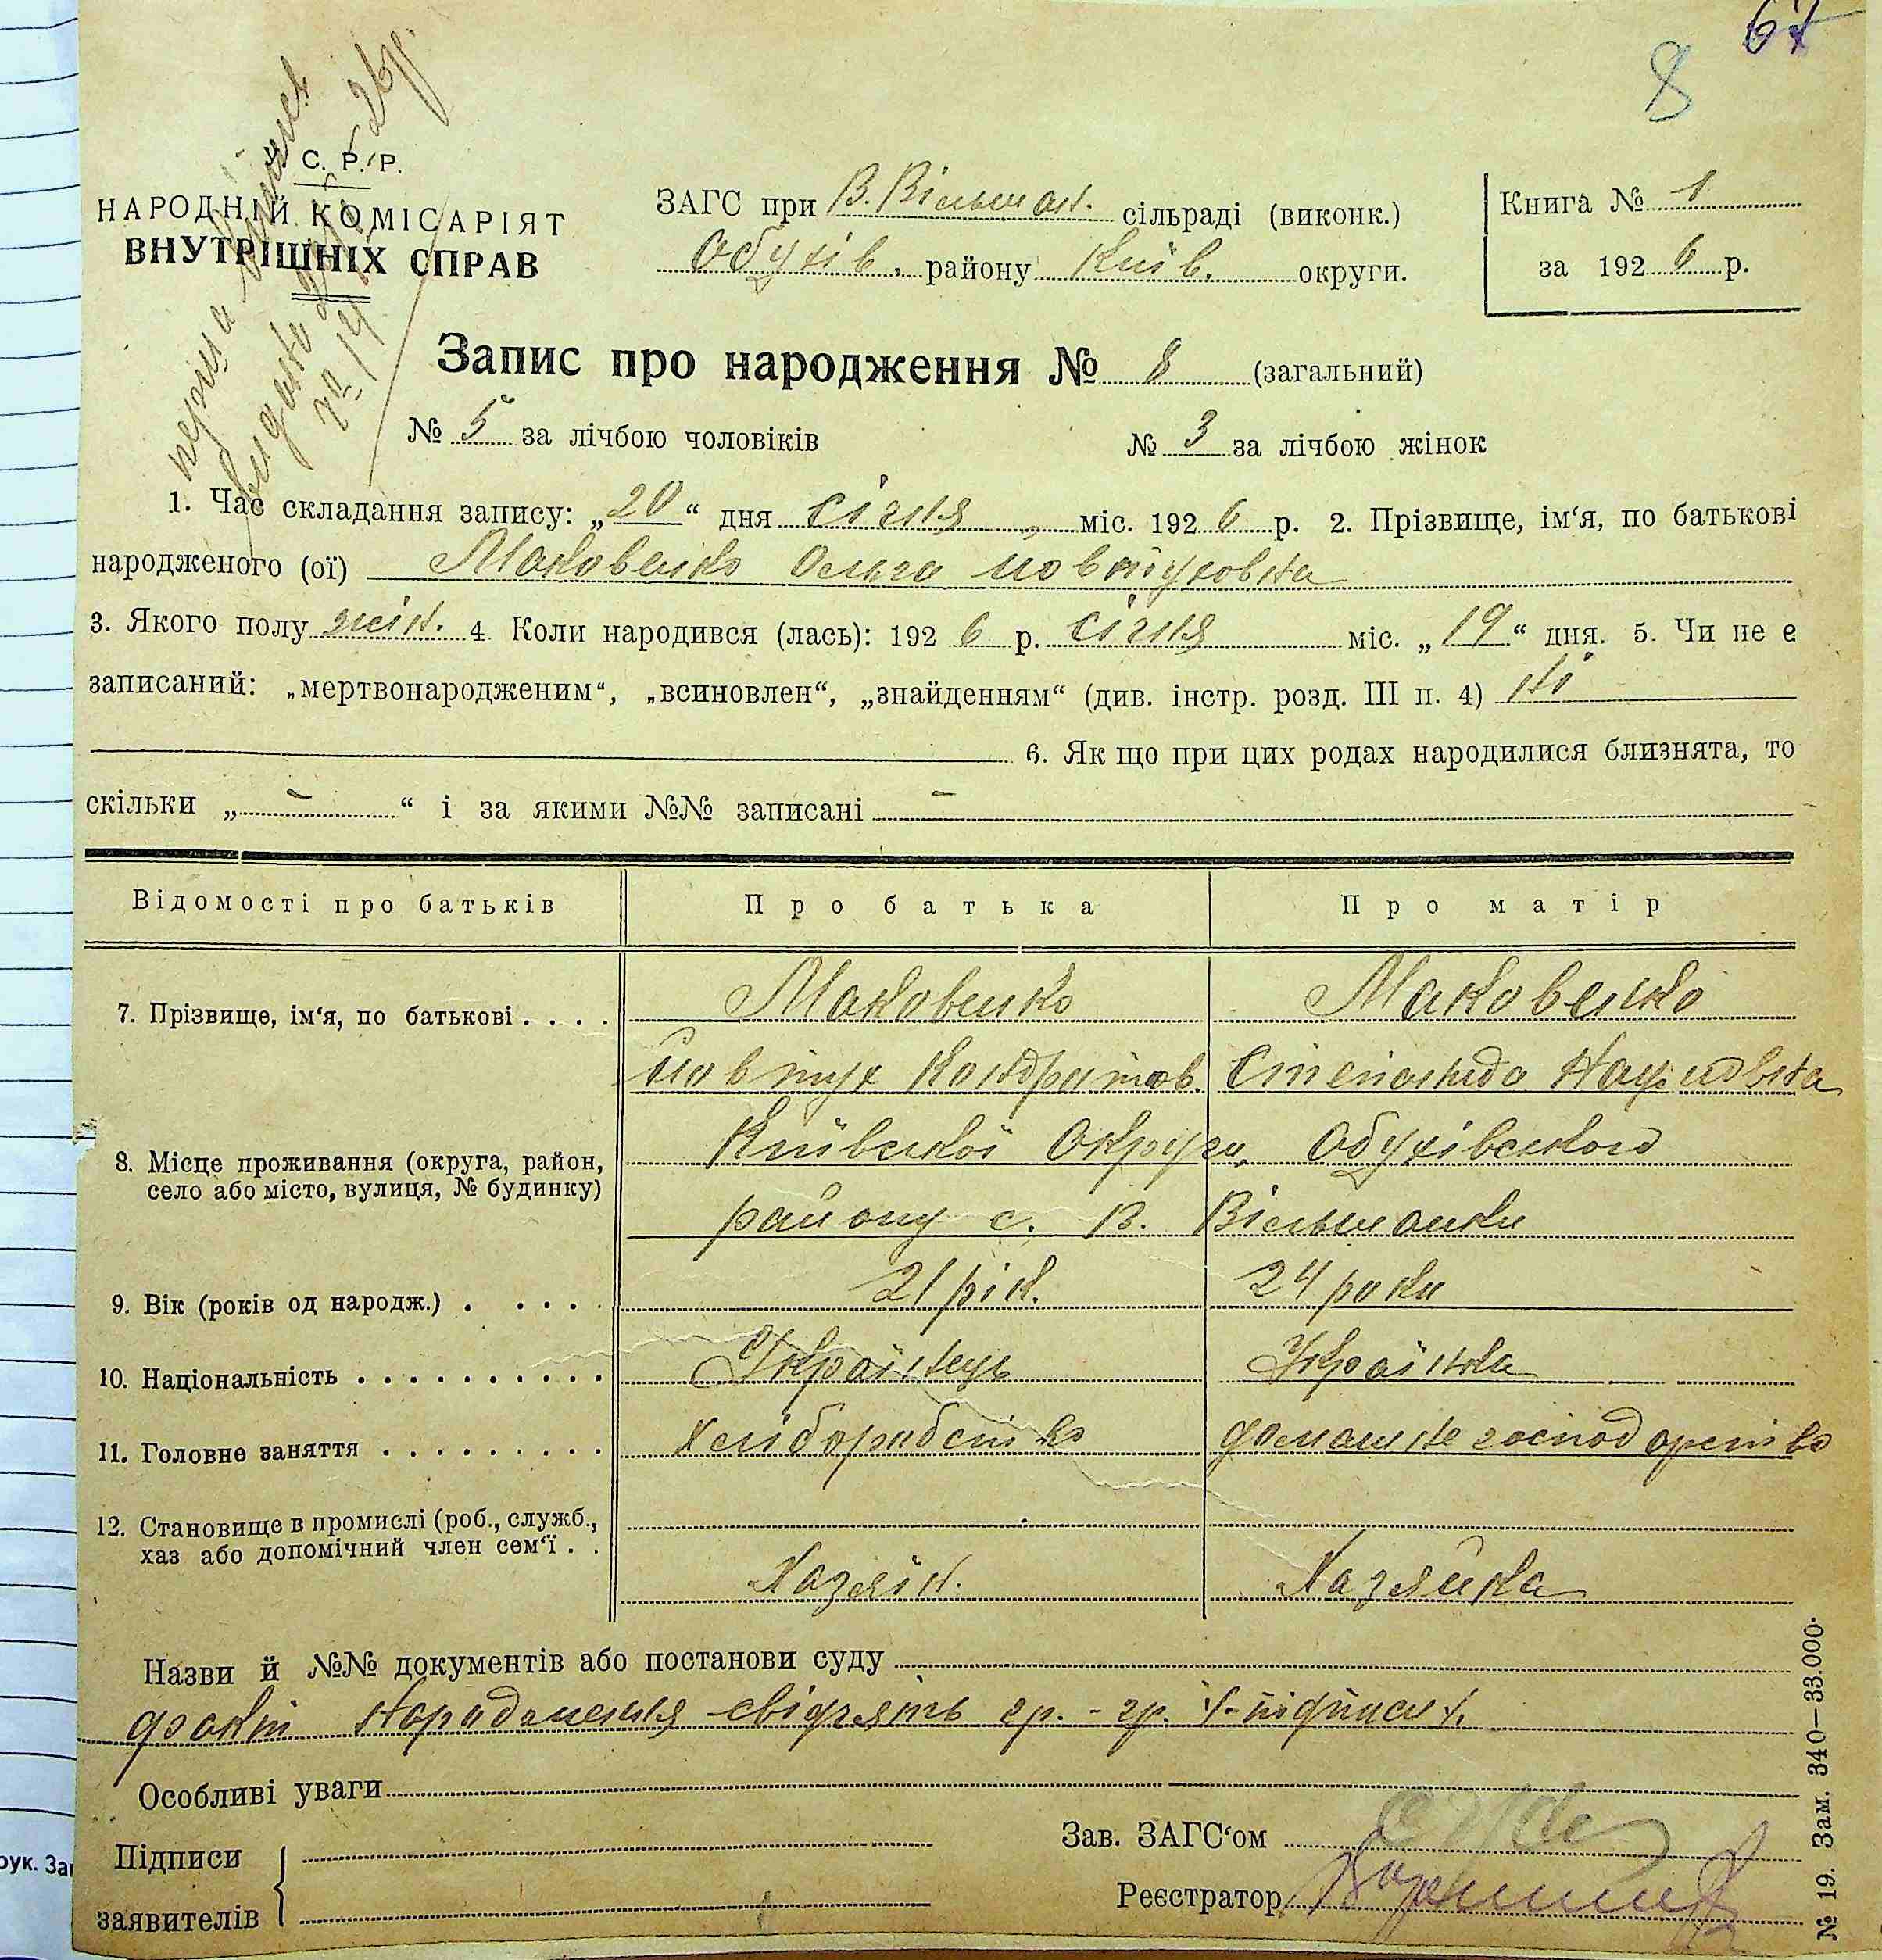 67
8
перша виписка
видана
26 р.
№ 14
С. Р. Р.
НАРОДНІЙ КОМІСАРІЯТ
ВНУТРІШНІХ СПРАВ
ЗАГС при В. Вільшан. сільраді (виконк.)
Обухів. району Київ. округи.
Книга № 1
за 1926 р.
Запис про народження № 8 (загальний)
№ 5 за лічбою чоловіків № 3 за лічбою жінок
1. Час складання запису: „20“ дня січня міс. 1926 р. 2. Прізвище, ім‘я, по батькові
народженого (ої) Маковенко Ольга Йовтуховна
3. Якого полу жін. 4. Коли народився (лась): 1926 р. січня міс. „19“ дня. 5. Чи не є
записаний: „мертвонародженим“, „всиновлен“, „знайденням“ (див. інстр. розд. III п. 4) ні
6. Як що при цих родах народилися близнята, то
скільки „ – “ і за якими №№ записані –
Відомості про батьків Про батька Про матір
7. Прізвище, ім‘я, по батькові . . . . Маковенко Маковенко
Йовтух Кондратов. Степанида Наумовна
8. Місце проживання (округа, район, Київської Округи, Обухівського
село або місто, вулиця, № будинку) району с. В. Вільшанки
9. Вік (років од народж.) . . . . . 21 рік. 24 роки
10. Національність . . . . . . . . . . Українець Українка
11. Головне заняття . . . . . . . . . Хліборобство домашнє господарство
12. Становище в промислі (роб., служб.,
хаз або допомічний член сем‘ї . . Хазяїн. Хазяйка
Назви й №№ документів або постанови суду
факт народження свідчать гр. - гр. /-підписи/.
Особливі уваги
Підписи
заявителів
Зав. ЗАГС‘ом
Реєстратор
№ 19. Зам. 340—33.000.
рук. За